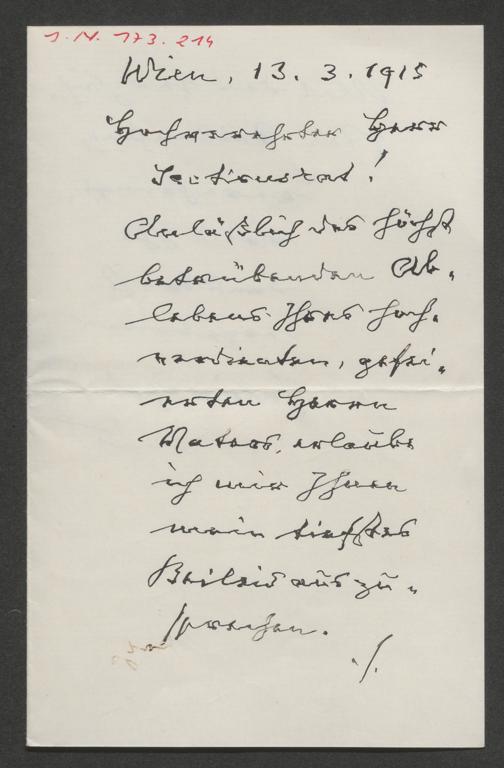 J. N. 173.214
Wien, 13. 3. 1915
Hochverehrter Herr
Sectionsrat!
Anläßlich des höchst
betrübenden Ab-
lebens Ihres hoch-
verdienten, gefei-
erten Herrn
Vaters, erlaube
ich mir Ihnen
mein tiefstes
Beileid auszu-
sprechen.
./.